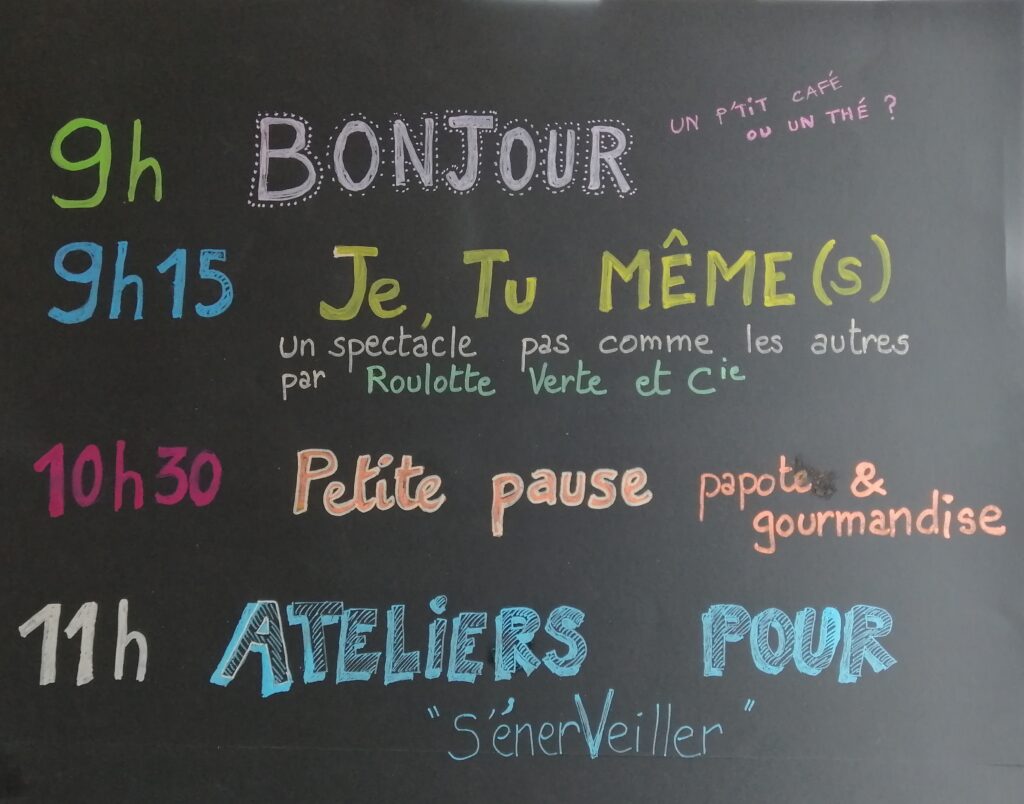 9h BONJOUR UN P'TIT CAFÉ
OU UN THÉ ?
9h15 Je, Tu MÊME(s)
un spectacle pas comme les autres
par Roulotte Verte et Cie
10h30 Petite pause papote &
gourmandise
11h ATELIERS POUR
"S'énerVeiller"